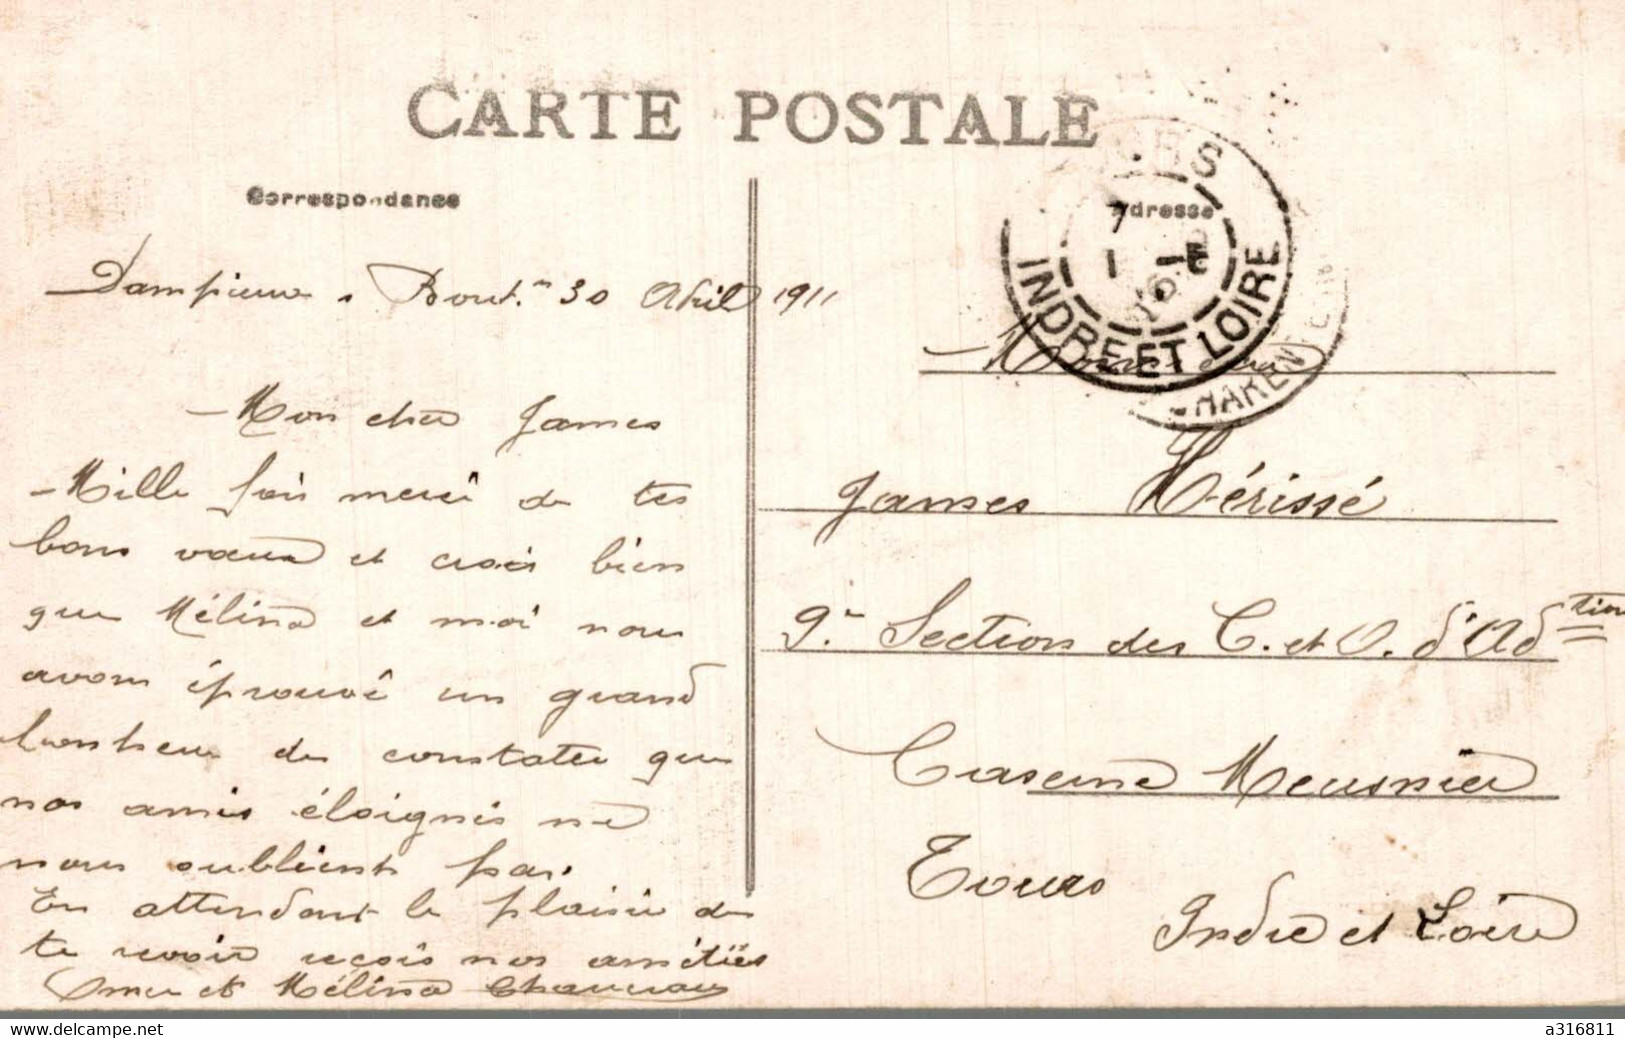 CARTE POSTALE
Correspondance
Adresse
Dampierre s Bout.ne 30 Avril 1911
Mon cher James
Mille fois merci de tes
bons vœux et crois bien
que Mélina et moi nous
avons éprouvé un grand
bonheur de constater que
nos amis éloignés ne
nous oublient pas.
En attendant le plaisir de
te revoir reçois nos amitiés
Omer et Mélina
TOURS
7
1 - 5
INDRE ET LOIRE
CHARENTE
Monsieur
James Hérissé
9e Section des C. et O. d'Adtion
Caserne Meusnier
Tours
Indre et Loire
delcampe.net
a316811